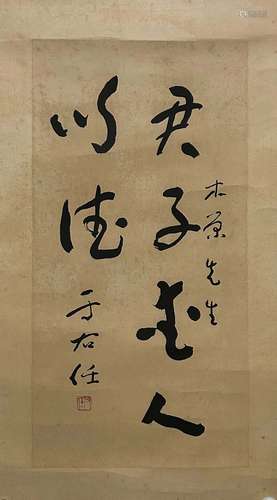 木原先生
君子愛人
以德
于右任